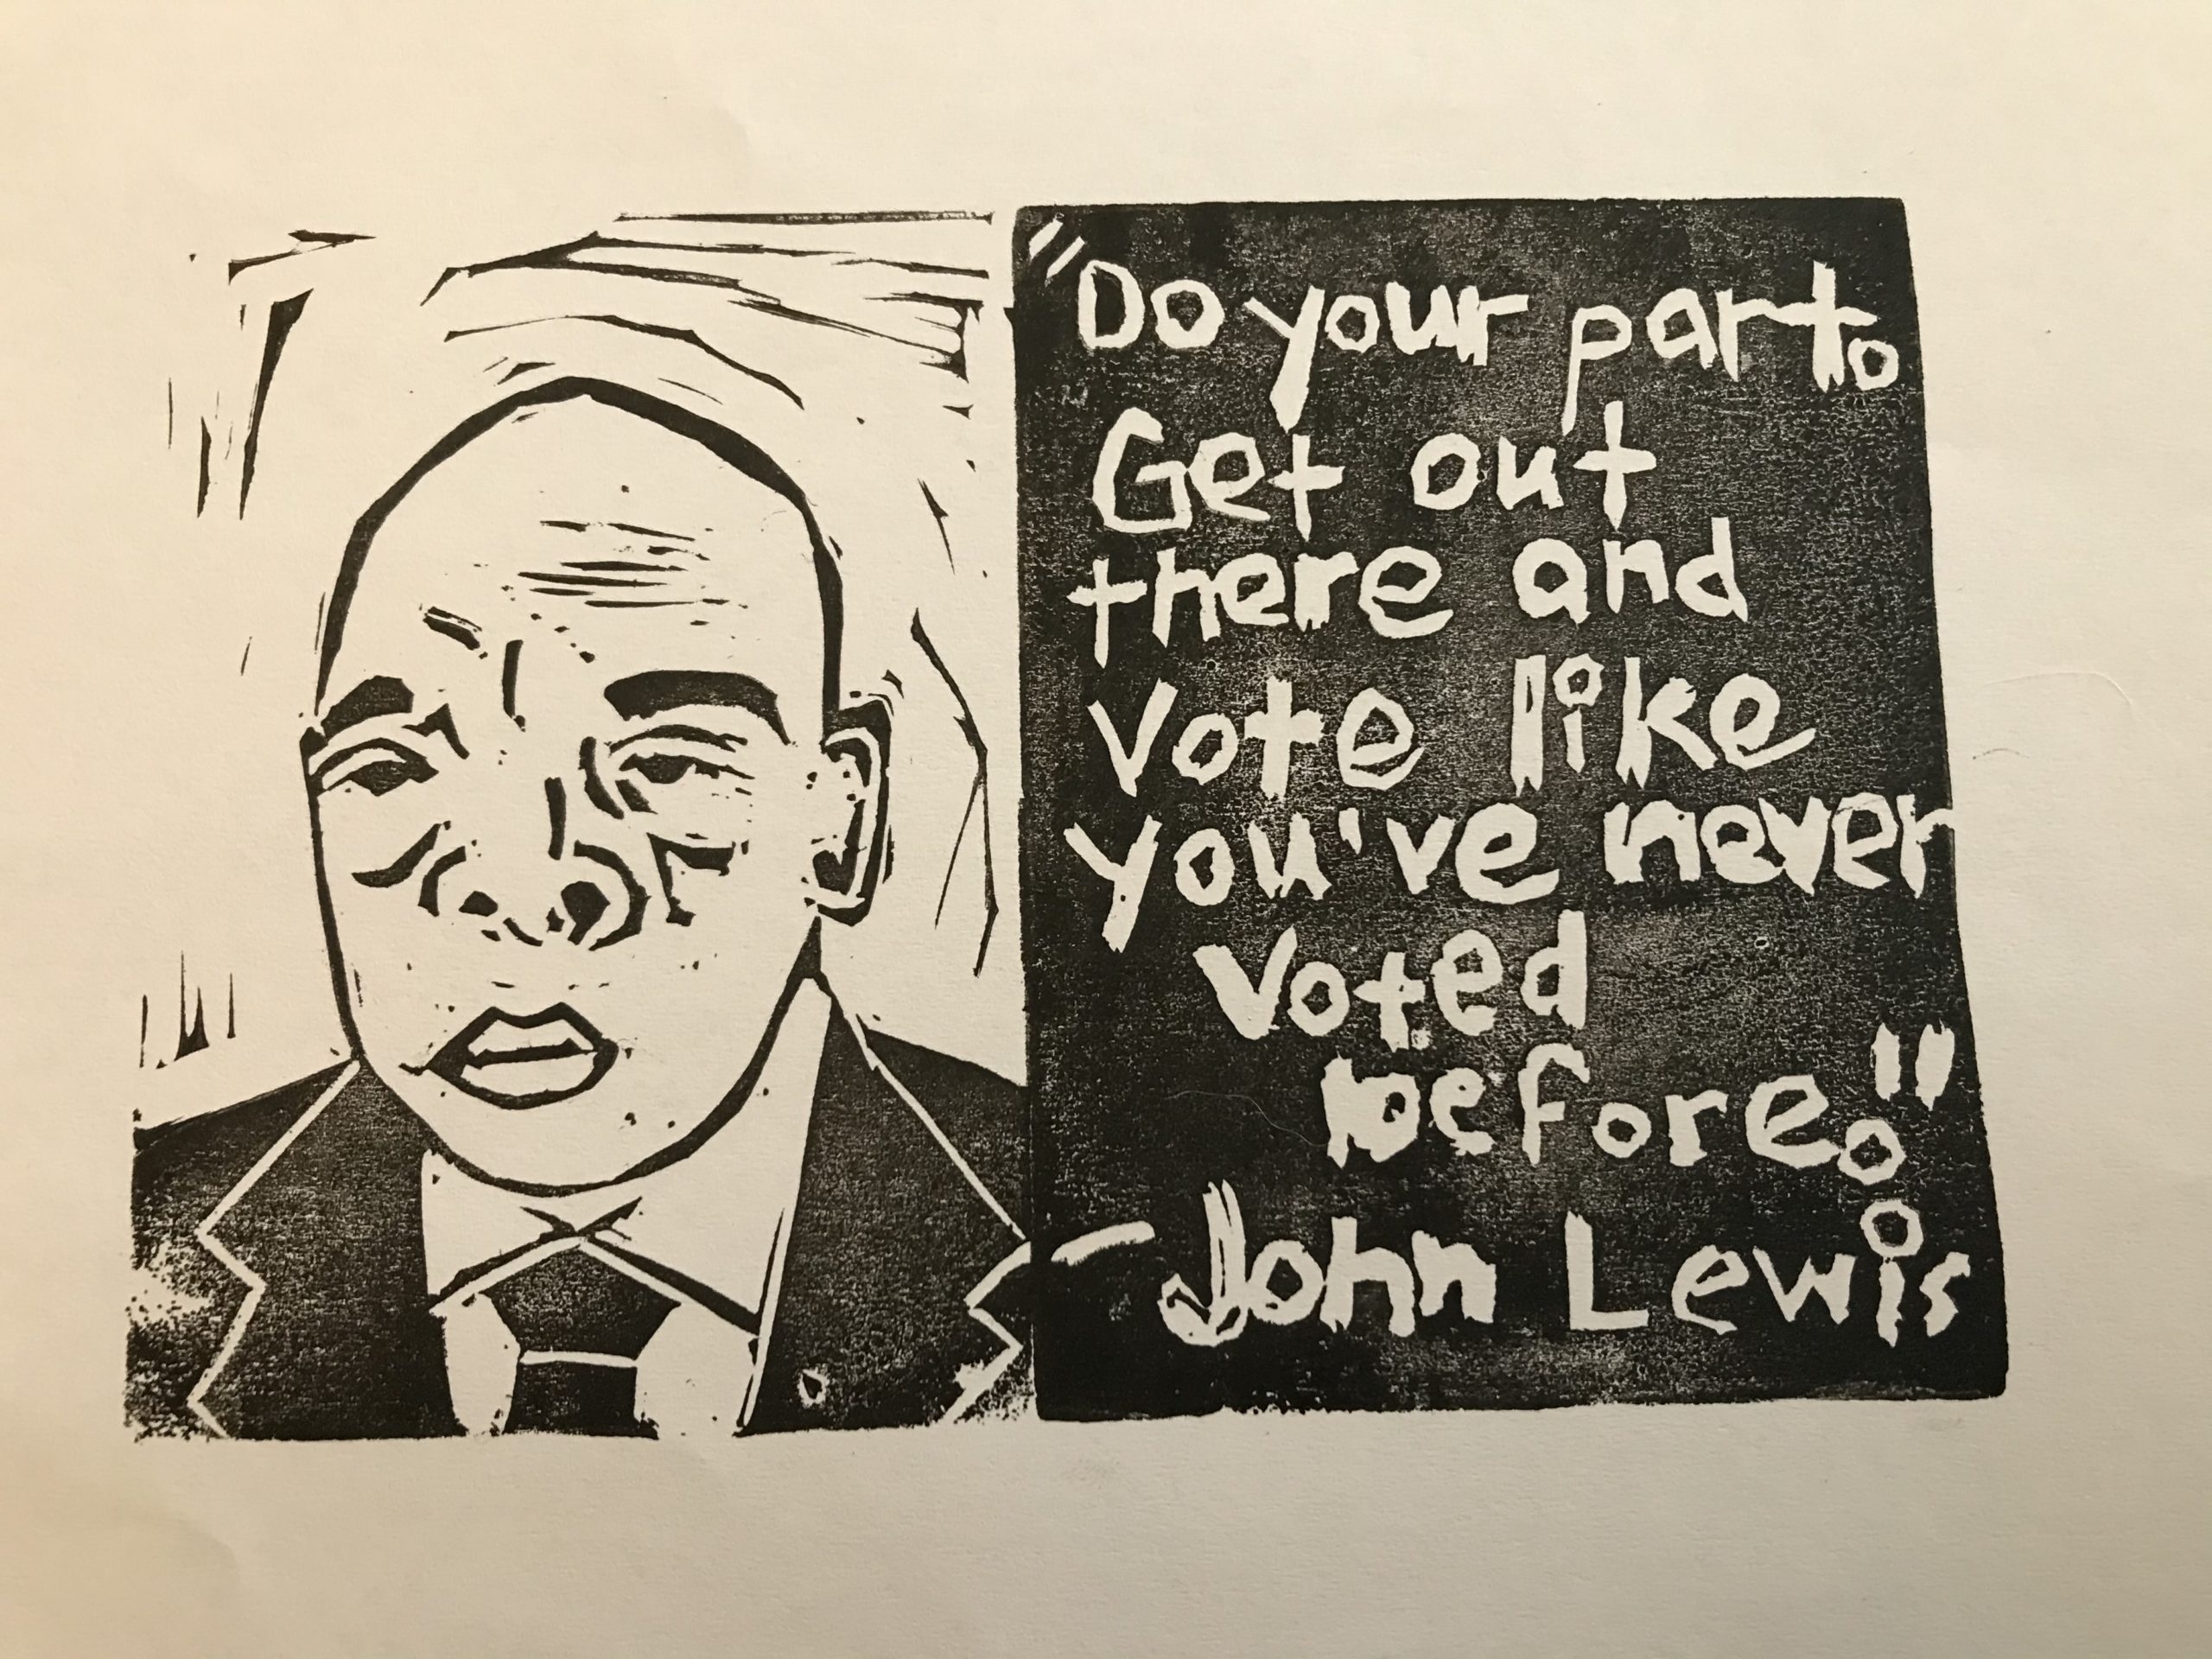 "Do your part.
Get out
there and
vote like
you've never
voted
before."
- John Lewis